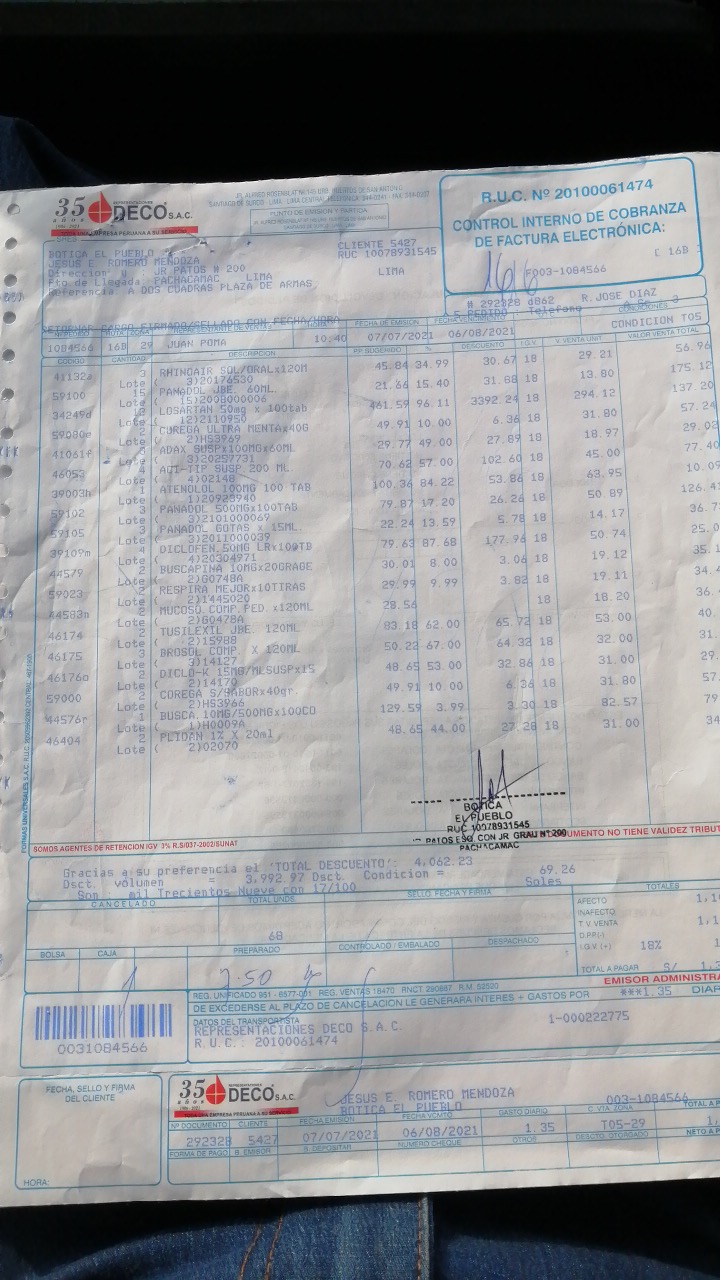 35 años REPRESENTACIONES DECO S.A.C.
UNA EMPRESA PERUANA A SU SERVICIO
PUNTO DE EMISIÓN Y PARTIDA
R.U.C. Nº 20100061474
CONTROL INTERNO DE COBRANZA
DE FACTURA ELECTRÓNICA:
F003-1084566
C 16B
BOTICA EL PUEBLO
JESUS E. ROMERO MENDOZA
JR PATOS # 200
Pto.de Llegada : PACHACAMAC LIMA
Referencia: A DOS CUADRAS PLAZA DE ARMAS,
CLIENTE 5427
RUC 10078931545
LIMA
# 292328 d862 R.JOSE DIAZ
S PEDIDO : Telefono
RETORNAR CARGO FIRMADO/SELLADO CON FECHA/HORA
FECHA DE EMISIÓN
CONDICION T05
1084566 16B 29 JUAN POMA 10:40 07/07/2021 06/08/2021
CÓDIGO CANTIDAD DESCRIPCIÓN PP.SUGERIDO % DESCUENTO I.G.V. V.VENTA UNIT VALOR VENTA TOTAL
41132a 3 RHINOAIR SOL/ORALx120M 45.84 34.99 30.67 18 29.21 56.96
Lote ( 3)20176530
59100 15 PANADOL JBE. 60ML. 21.66 15.40 31.88 18 13.80 175.12
Lote ( 15)2008000006
34249d LOSARTAN 50mg x 100tab 461.59 96.11 3392.24 18 294.12 137.20
Lote ( 12)2110950
59080e 2 COREGA ULTRA MENTAx40G 49.91 10.00 6.36 18 31.80 57.24
Lote ( 2)HS3969
41061f ADAX SUSPx100MGx60ML 29.77 49.00 27.89 18 18.97 29.02
Lote ( 3)20257731
46053 ACI-TIP SUSP 200 ML. 70.62 57.00 102.60 18 45.00 77.40
Lote ( 4)02148
39003h 1 ATENOLOL 100MG 100 TAB 100.36 84.22 53.86 18 63.95 10.09
Lote ( 1)20928940
59102 3 PANADOL 500MGx100TAB 79.87 17.20 26.26 18 50.89 126.4
Lote ( 3)2101000069
59105 3 PANADOL GOTAS x 15ML. 22.24 13.59 5.78 18 14.17 36.7
Lote ( 3)2011000039
39109m 4 DICLOFEN.50MG LRx100TB 79.63 87.68 177.96 18 50.74
Lote ( 4)20304971
44579 2 BUSCAPINA 10MGx20GRAGE 30.01 8.00 3.06 18 19.12 35.1
Lote ( 2)G0748A
59023 2 RESPIRA MEJORx10TIRAS 29.99 9.99 3.82 18 19.11 34.4
Lote ( 2)1445020
44583n 2 MUCOSO.COMP.PED.x120ML 28.56 18 18.20 36.
Lote ( 2)G0478A
46174 2 TUSILEXIL JBE. 120ML 83.18 62.00 65.72 18 53.00 40
Lote ( 2)15988
46175 3 BROSOL COMP. X 120ML 50.22 67.00 64.32 18 32.00
Lote ( 3)14127
46176a 2 DICLO-K 15MG/MLSUSPx15 48.65 53.00 32.86 18 31.00 29.
Lote ( 2)14170
59000 2 COREGA S/SABORx40gr. 49.91 10.00 6.36 18 31.80 57.
Lote ( 2)HS3966
44576r 1 BUSCA.10MG/500MGx100CO 129.59 3.99 3.30 18 82.57 79
Lote ( 1)H0009A
46404 2 PLIDAN 1% X 20ml 48.65 44.00 27.28 18 31.00 34
Lote ( 2)02070
BOTICA
EL PUEBLO
RUC 10078931545
PATOS ESQ. CON JR GRAU Nº 200
PACHACAMAC
SOMOS AGENTES DE RETENCION IGV 3% R.S/037-2002/SUNAT
DOCUMENTO NO TIENE VALIDEZ TRIBUT
Gracias a su preferencia el 'TOTAL DESCUENTO': 4,062.23
Dsct. volumen = 3,992.97 Dsct. Condicion = 69.26
Son : mil Trecientos Nueve con 17/100 Soles
CANCELADO TOTAL UNDS. SELLO, FECHA Y FIRMA TOTALES
68
AFECTO
INAFECTO
T.V. VENTA
D.P.P.(-)
I.G.V. (+) 18%
TOTAL A PAGAR S/
BOLSA CAJA PREPARADO CONTROLADO / EMBALADO DESPACHADO
EMISOR ADMINISTRA
DE EXCEDERSE AL PLAZO DE CANCELACION LE GENERARA INTERES + GASTOS POR ***1.35 DIAR
DATOS DEL TRANSPORTISTA
REPRESENTACIONES DECO S.A.C.
R.U.C.: 20100061474
1-000222775
0031084566
FECHA, SELLO Y FIRMA
DEL CLIENTE
HORA:
35 años REPRESENTACIONES DECO S.A.C.
UNA EMPRESA PERUANA A SU SERVICIO
JESUS E. ROMERO MENDOZA
BOTICA EL PUEBLO
003-1084566
Nº DOCUMENTO CLIENTE FECHA EMISION FECHA VCMTO GASTO DIARIO C. VTA ZONA TOTAL A P
292328 5427 07/07/2021 06/08/2021 1.35 T05-29
FORMA DE PAGO B. EMISOR B. DEPOSITAR NUMERO CHEQUE OTROS DESCTO. OTORGADO NETO A P